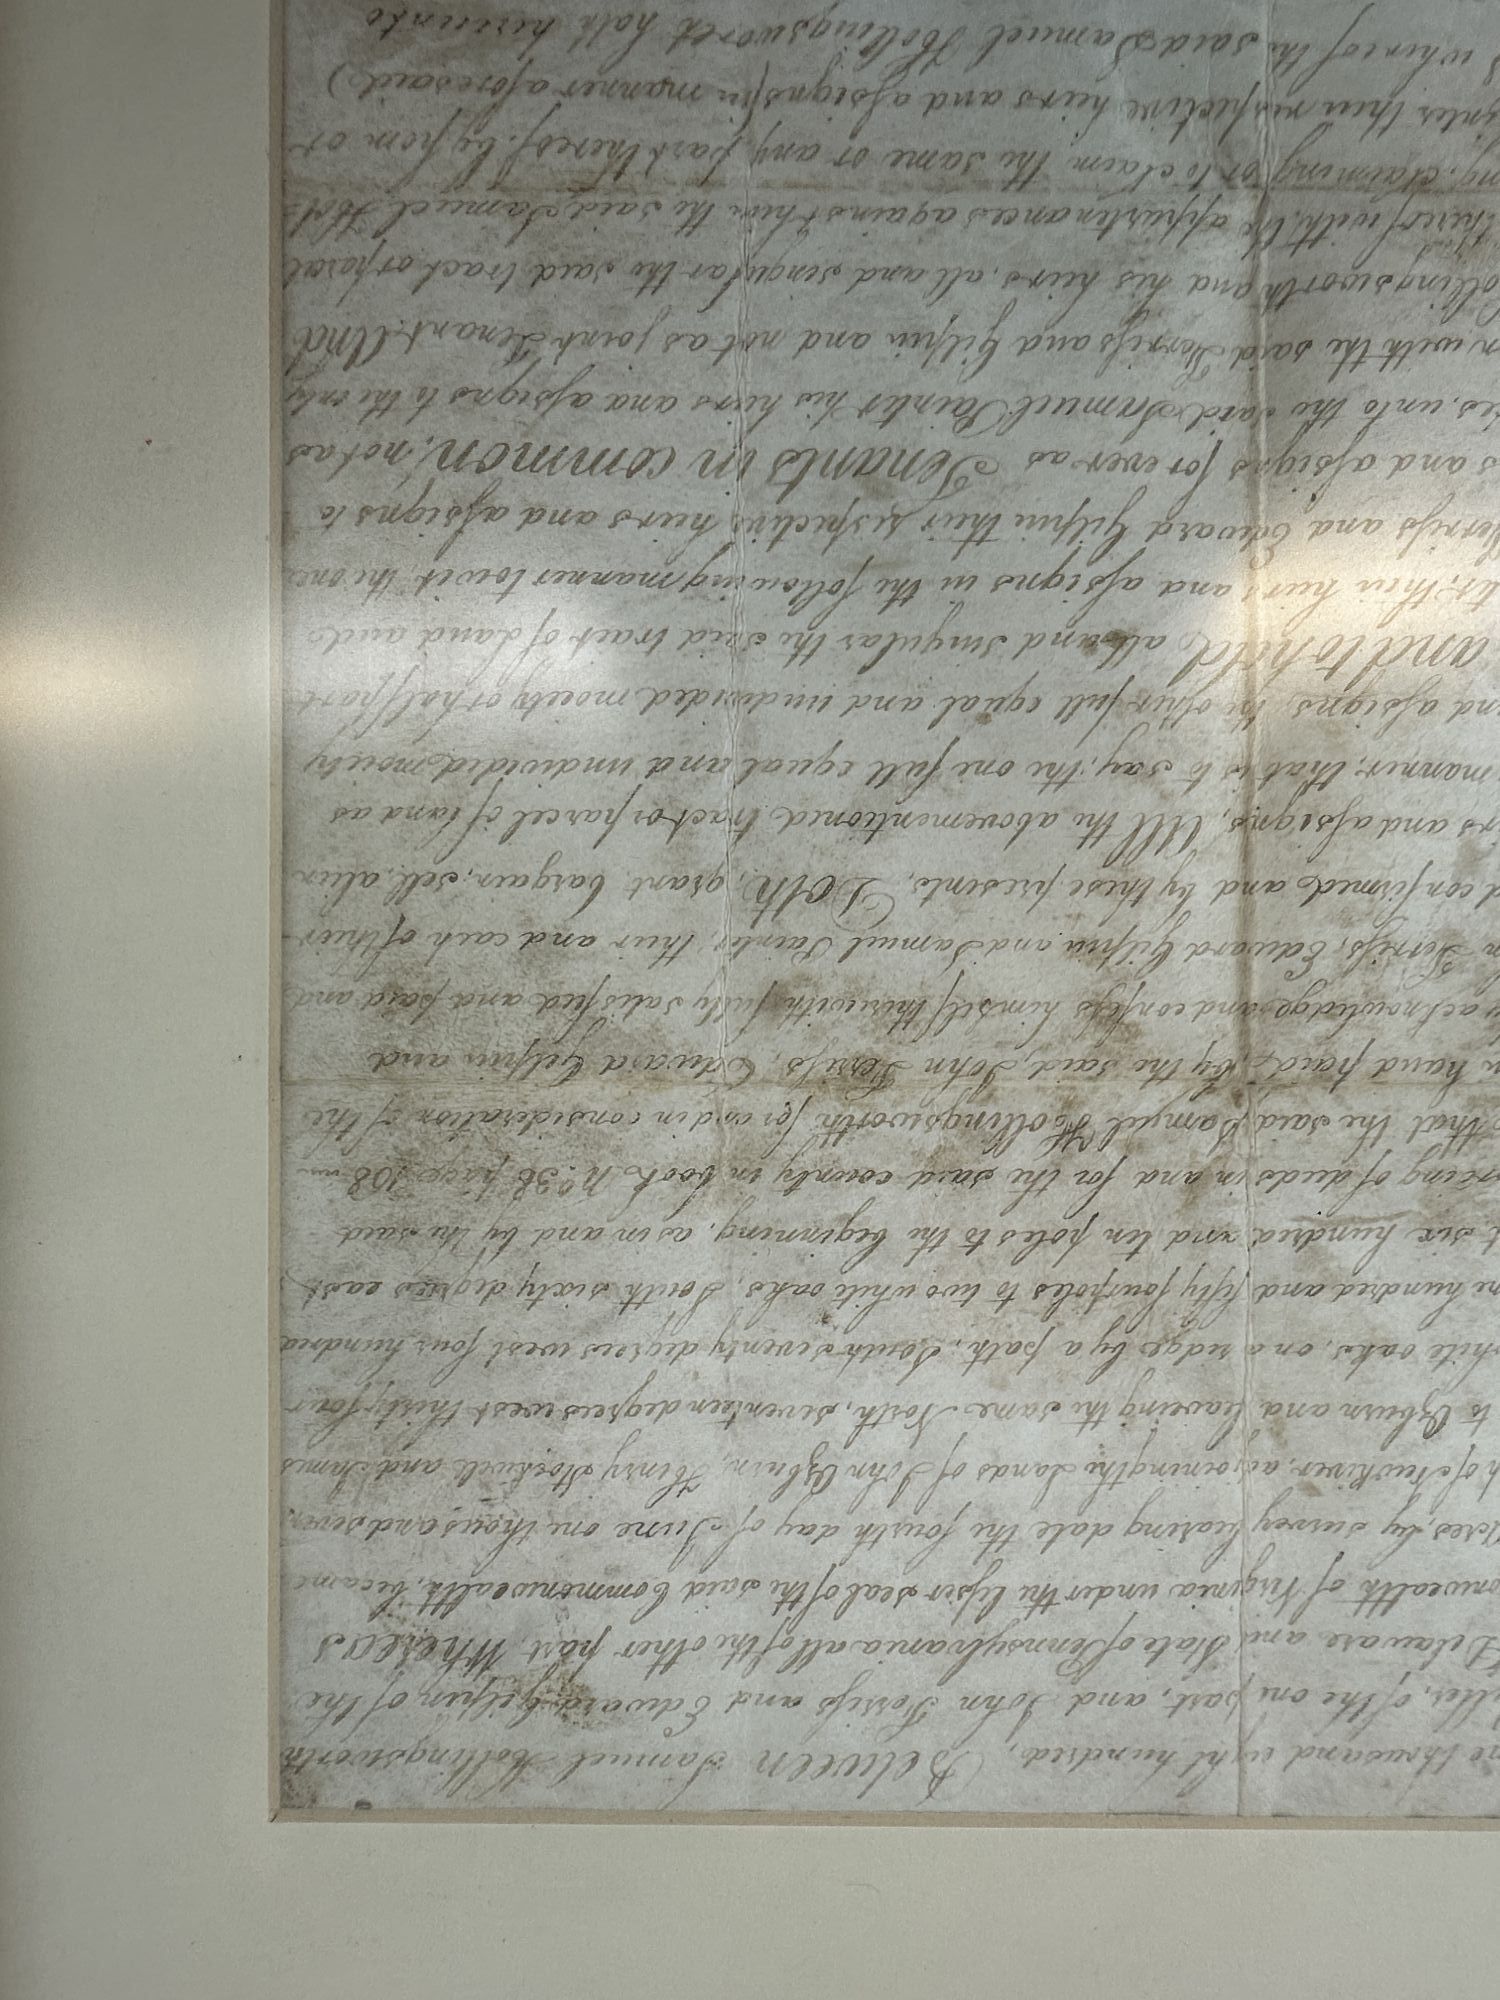 thousand eight hundred, Between Samuel Hollingsworth
of the one part, and, John Forrifs and Edward Gilpin of the
Delaware and State of Pennsylvania all of the other part, Whereas
onwealth of Virginia under the lefser seal of the said Commonwealth, became
Acres, by survey bearing date the fourth day of June one thousand seven
adjoining the Lands of John Ozburn, Henry Stockwell and James
to Ozburn and leaving the same North, seventeen degrees west thirty four
white oaks, on a ridge by a path, South seventy degrees west four hundred
hundred and fifty four poles to two white oaks, South sixty degrees east
six hundred and ten poles to the beginning, as in and by the said
of deeds in and for the said county in book No. 38 page 108
that the said Samuel Hollingsworth for and in consideration of the
hand paid, by the said, John Ferrifs, Edward Gilpin and
acknowledge and confefs himself therewith fully satisfied and paid and
Ferrifs, Edward Gilpin and Samuel Painter, their and each of their
confirmed and by these presents, Doth, grant, bargain, sell, alien
and afsigns, All the abovementioned tract or parcel of land as
manner, that is to say, the one full equal and undivided moiety
and afsigns, the other full equal and undivided moiety or half part
and to hold, all and singular the said tract of land and
their heirs and afsigns in the following manner to wit the one
and Edward Gilpin their respective heirs and afsigns to
and afsigns for ever as Tenants in common, not as
unto the said Samuel Painter his heirs and afsigns to the only
with the said Forrifs and Gilpin and not as joint Tenant. And
ollingsworth and his heirs, all and singular the said tract or parcel
thereof with the appurtenances against him the said Samuel Hol-
claiming or to claim the same or any part thereof, by from or
their respective heirs and afsigns (in manner aforesaid)
whereof the said Samuel Hollingsworth hath hereunto